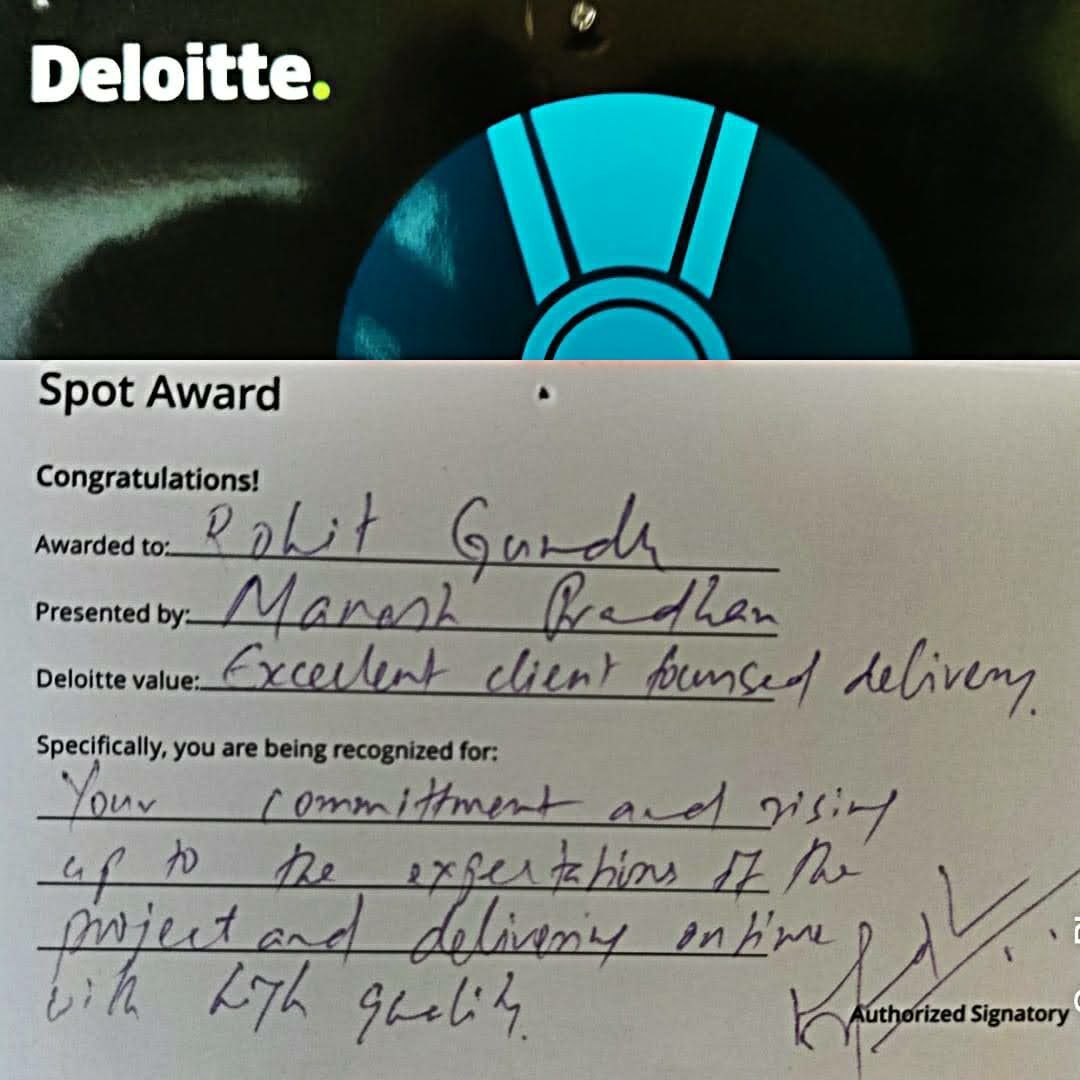 Deloitte.
Spot Award
Congratulations!
Awarded to: Rohit Gandh
Presented by: Manash Pradhan
Deloitte value: Excellent client founsed delivery.
Specifically, you are being recognized for:
Your committment and rising
up to the expectations of the
project and delivering on time
with high quality.
Authorized Signatory